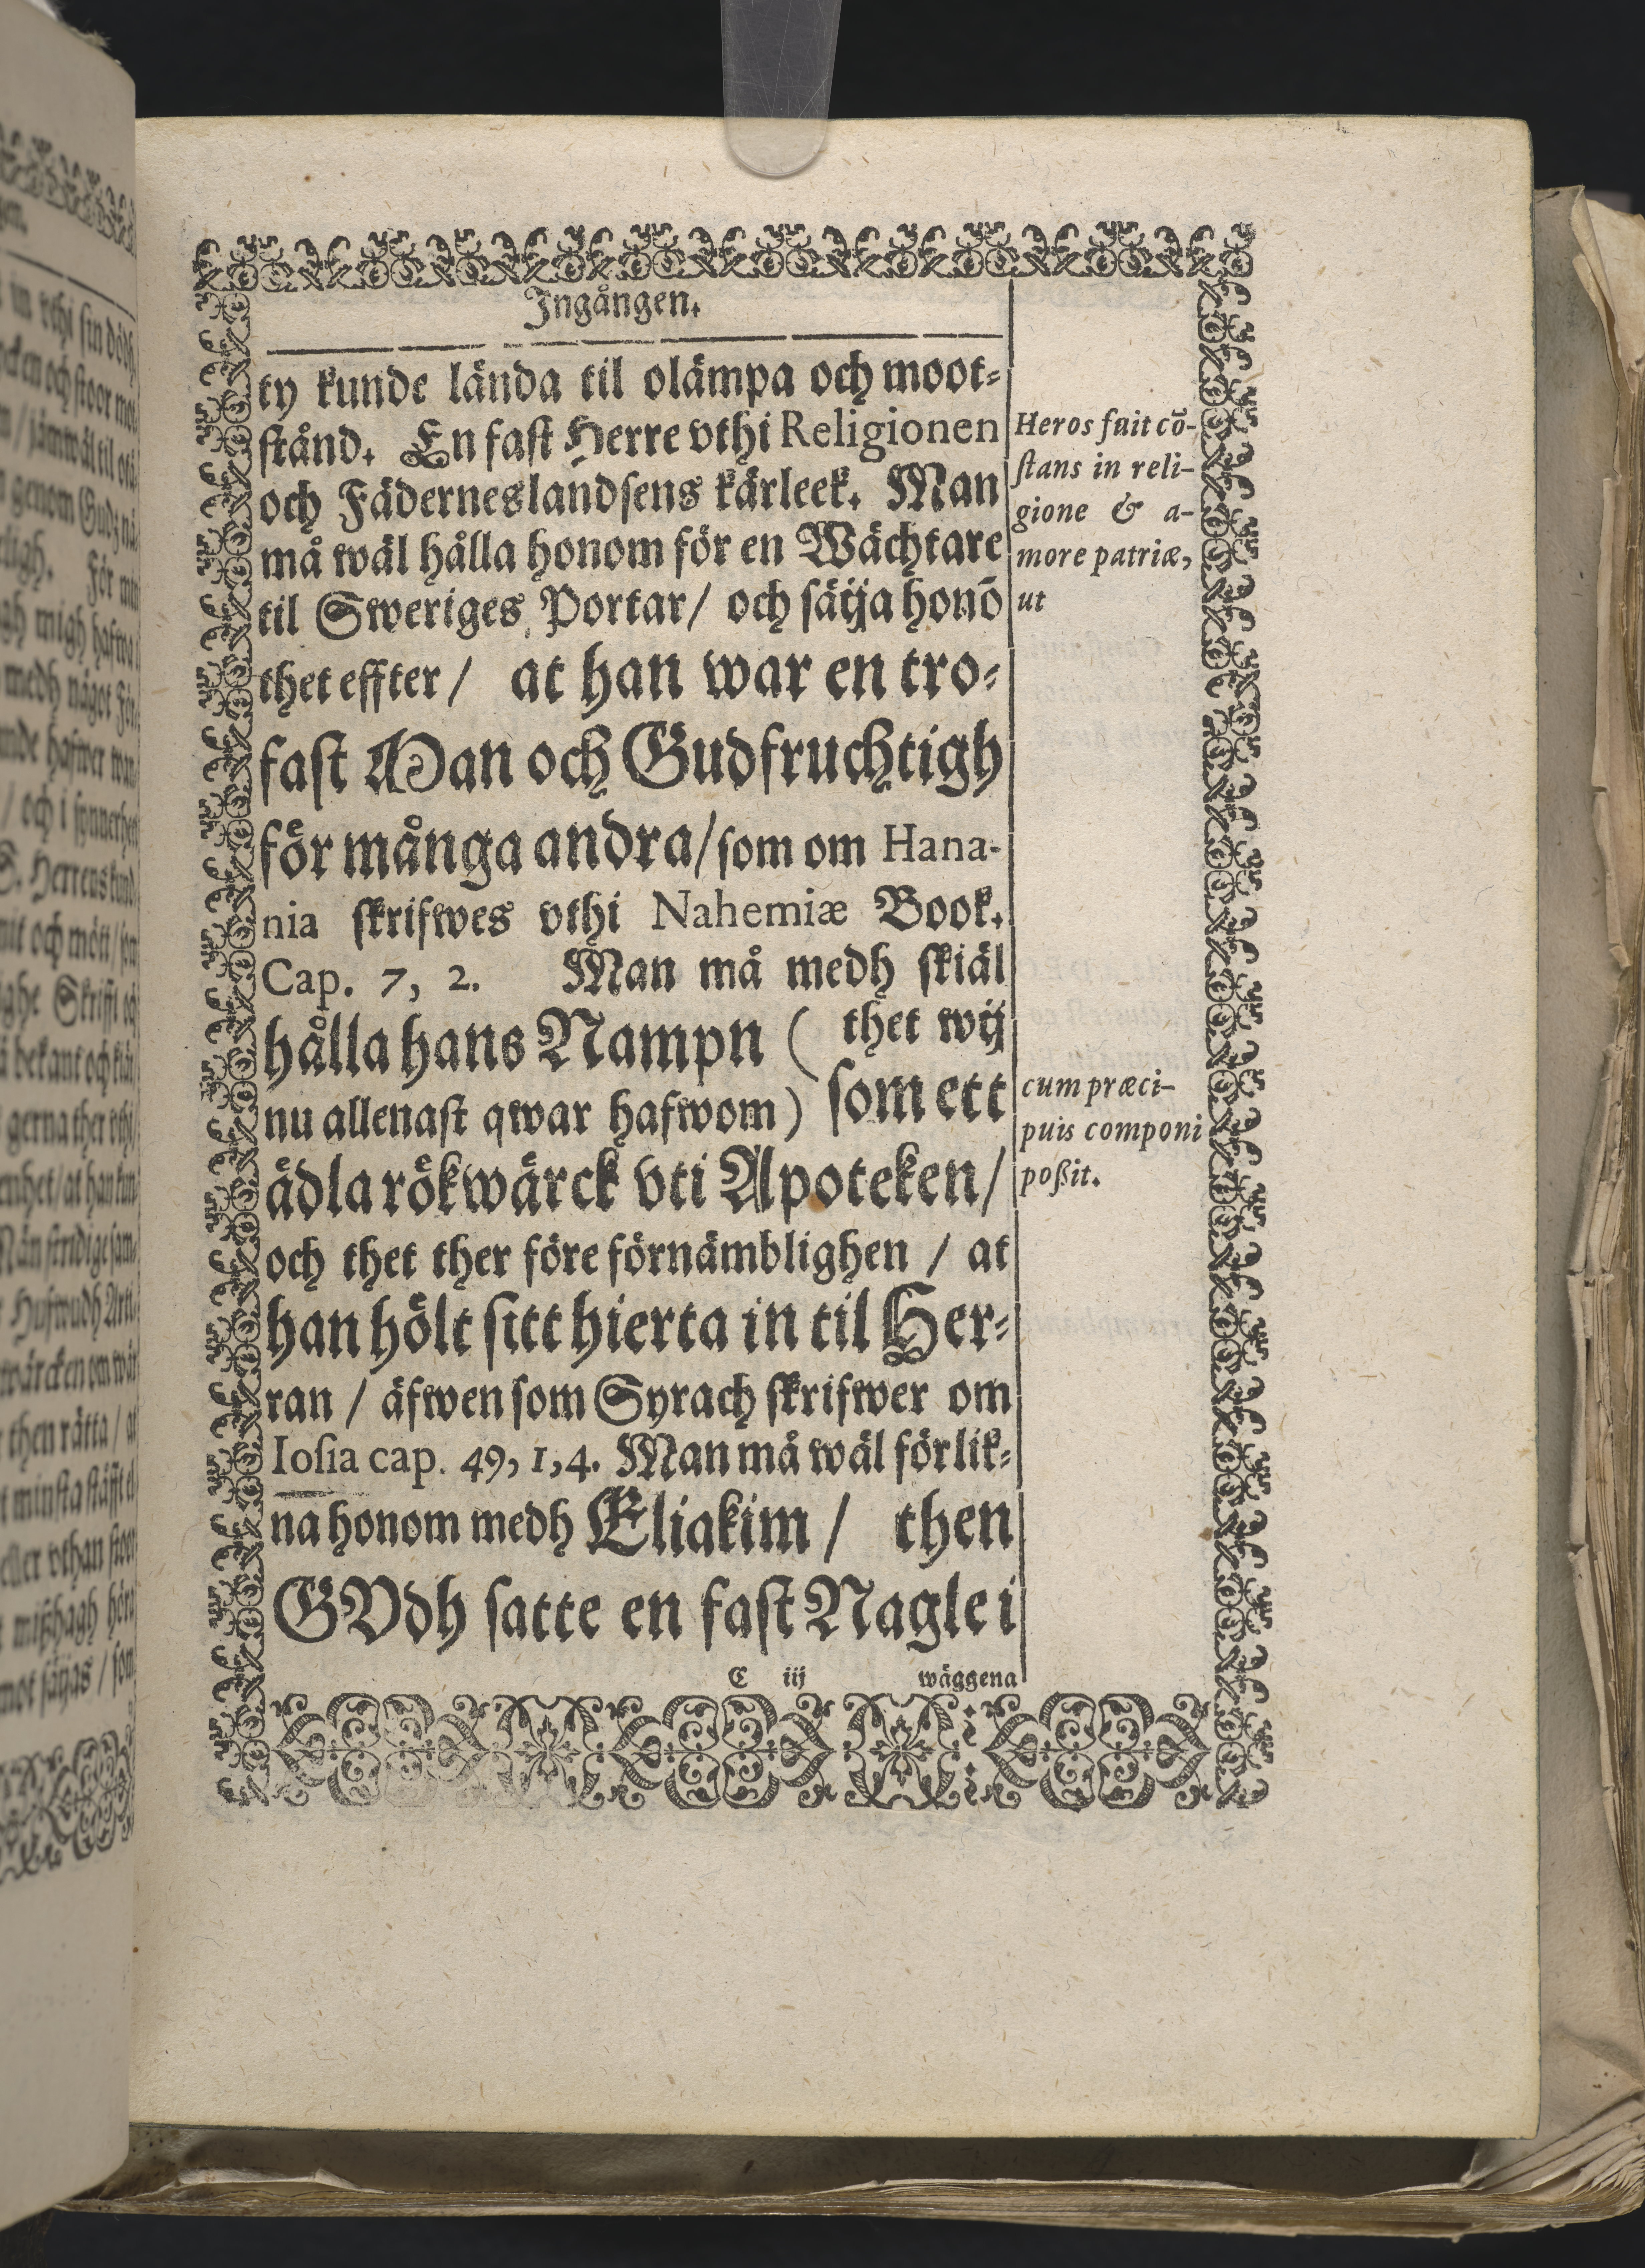 Ingången.
ty kunde lända til olämpa och moot-
stånd. En fast Herre vthi Religionen
och Fäderneslandsens kärleek. Man
må wäl hålla honom för en Wächtare
til Sweriges Portar/ och sätja honō
thet effter/ at han war en tro-
fast Man och Gudfruchtigh
för många andra/ som om Hana-
nia skrifwes vthi Nahemiæ Book.
Cap. 7, 2. Man må medh skiäl
hålla hans Nampn ( thet wij
nu allenast qwar hafwom) som ett
ädla rökwärck vti Apoteken/
och thet ther före förnämblighen / at
han hölt sitt hierta in til Her-
ran / äfwen som Syrach skrifwer om
Iosia cap. 49, 1, 4. Man må wäl förlik-
na honom medh Eliakim / then
GVdh satte en fast Nagle i
C iij wäggena
Heros fuit cō-
stans in reli-
gione & a-
more patriæ,
ut
cum præci-
puis componi
poßit.